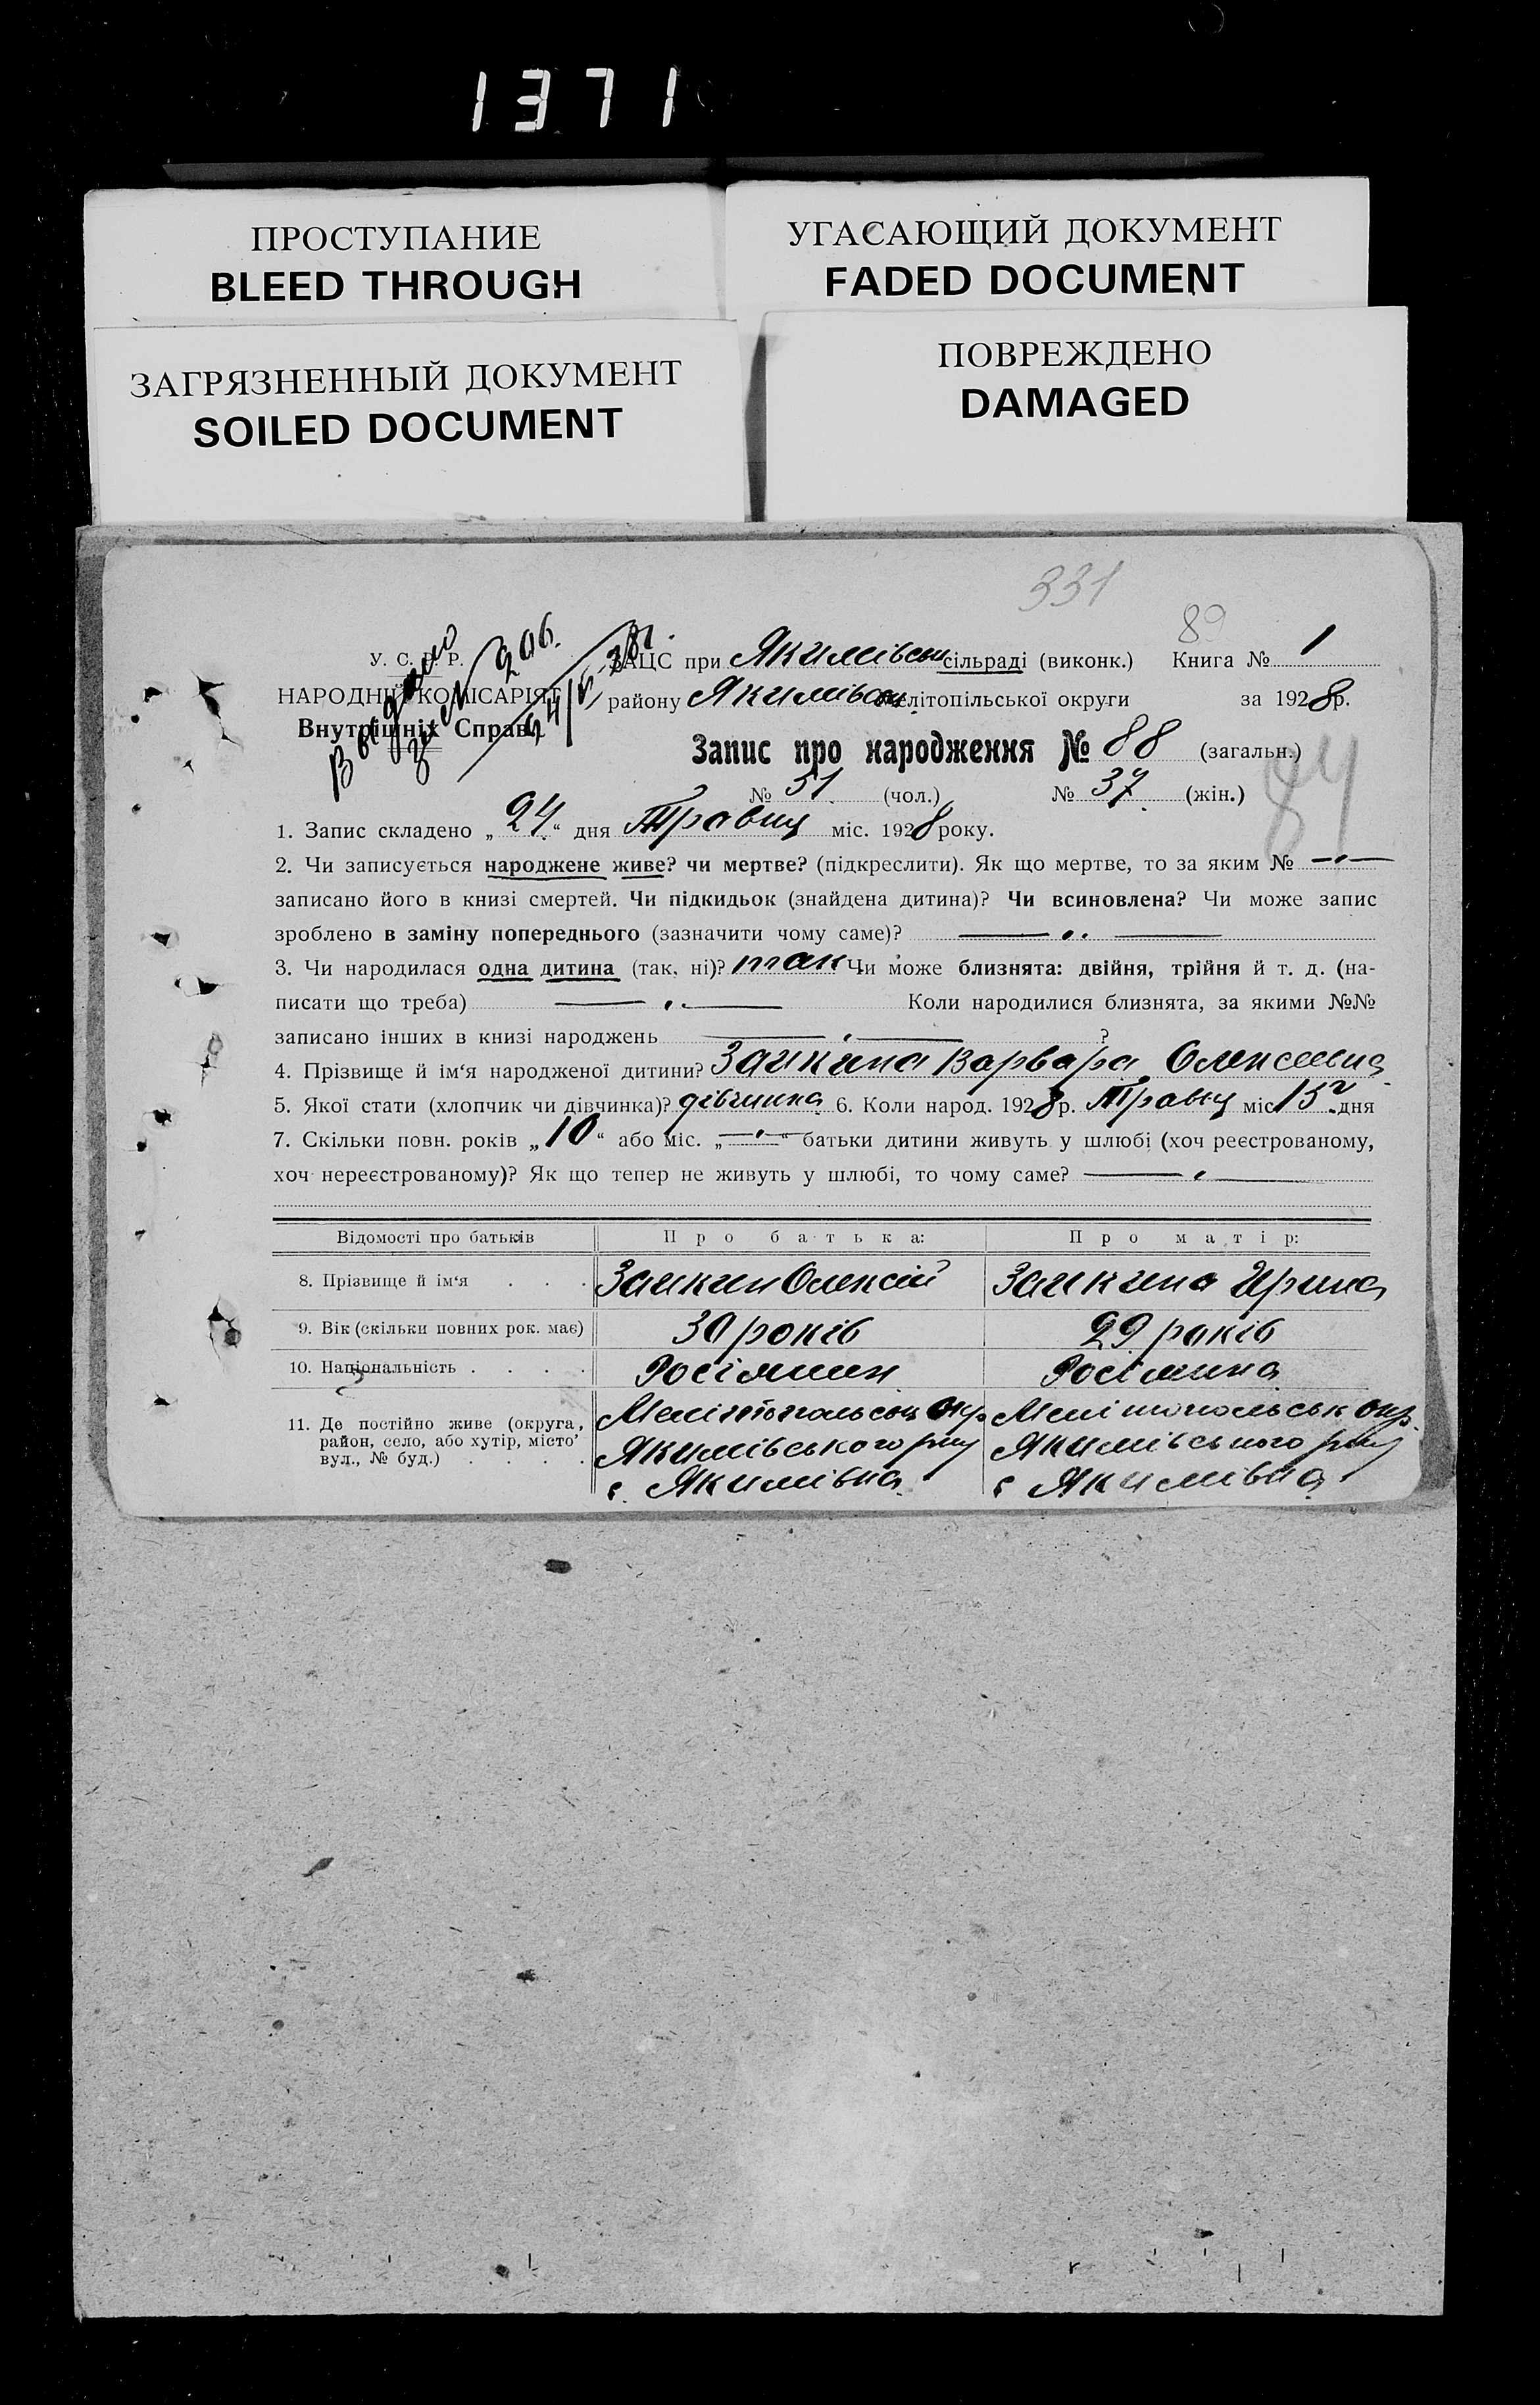 1371
ПРОСТУПАНИЕ
BLEED THROUGH
УГАСАЮЩИЙ ДОКУМЕНТ
FADED DOCUMENT
ЗАГРЯЗНЕННЫЙ ДОКУМЕНТ
SOILED DOCUMENT
ПОВРЕЖДЕНО
DAMAGED
331
89
84
Выдано
за № 206.
24/V 28г.
У. С. Р. Р.
НАРОДНІЙ КОМІСАРІЯТ
Внутрішніх Справ
ЗАЦС при Якимівськ сільраді (виконк.) Книга № 1
району Якимівськ Мелітопільської округи за 1928р.
Запис про народження № 88 (загальн.)
№ 51 (чол.) № 37 (жін.)
1. Запис складено „24“ дня Травня міс. 1928 року.
2. Чи записується народжене живе? чи мертве? (підкреслити). Як що мертве, то за яким №
записано його в книзі смертей. Чи підкидьок (знайдена дитина)? Чи всиновлена? Чи може запис
зроблено в заміну попереднього (зазначити чому саме)?
3. Чи народилася одна дитина (так, ні)? так Чи може близнята: двійня, трійня й т. д. (на-
писати що треба) Коли народилися близнята, за якими №№
записано інших в книзі народжень ?
4. Прізвище й ім‘я народженої дитини? Заикина Варвара Олексеевна
5. Якої стати (хлопчик чи дівчинка)? дівчинка 6. Коли народ. 1928р. Травня міс. 15 дня
7. Скільки повн. років „10“ або міс. „ “ батьки дитини живуть у шлюбі (хоч реєстрованому,
хоч нереєстрованому)? Як що тепер не живуть у шлюбі, то чому саме?
Відомості про батьків Про батька: Про матір:
8. Прізвище й ім‘я . . . Заикин Олексій Заикина Ирина
9. Вік (скільки повних рок. має) 30 років 29 років
10. Національність . . . . Росіянин Росіянина
11. Де постійно живе (округа, район, село, або хутір, місто, вул., № буд.) . . . .
Мелітопольськ окр. Якимівського р-ну с. Якимівна
Мелітопольськ окр. Якимівського р-ну с Якимівна